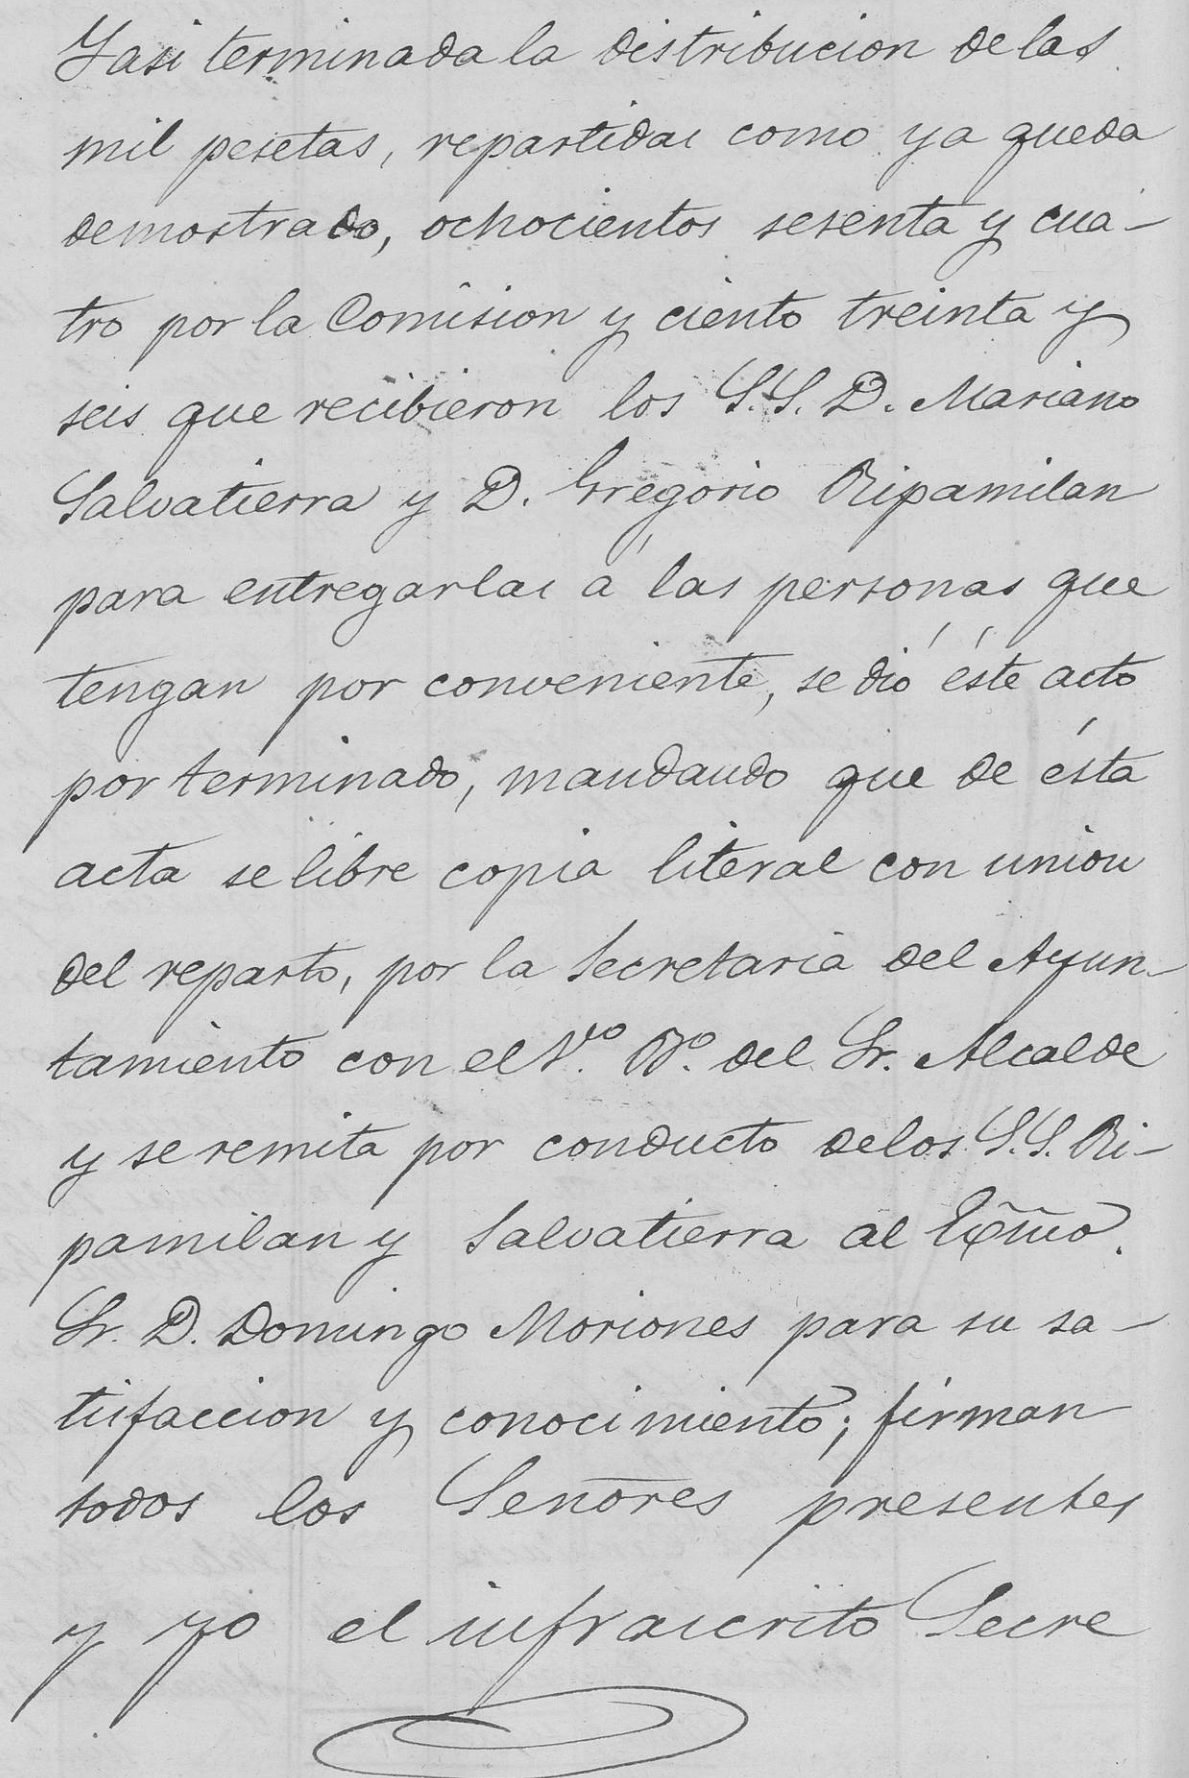 Y asi terminada la distribucion de las
mil pesetas, repartidas como ya queda
demostrado, ochocientos sesenta y cua-
tro por la Comision y ciento treinta y
seis que recibieron los S.S. D. Mariano
Salvatierra y D. Gregorio Ripamilan
para entregarlas á las personas que
tengan por conveniente, se dió éste acto
por terminado, mandando que de ésta
acta se libre copia literal con union
del reparto, por la Secretaria del Ayun-
tamiento con el V.º B.º del Sr. Alcalde
y se remita por conducto de los S.S. Ri-
pamilan y Salvatierra al Excmo.
Sr. D. Domingo Moriones para su sa-
tisfaccion y conocimiento; firman
todos los Señores presentes
y yo el infrascrito Secre